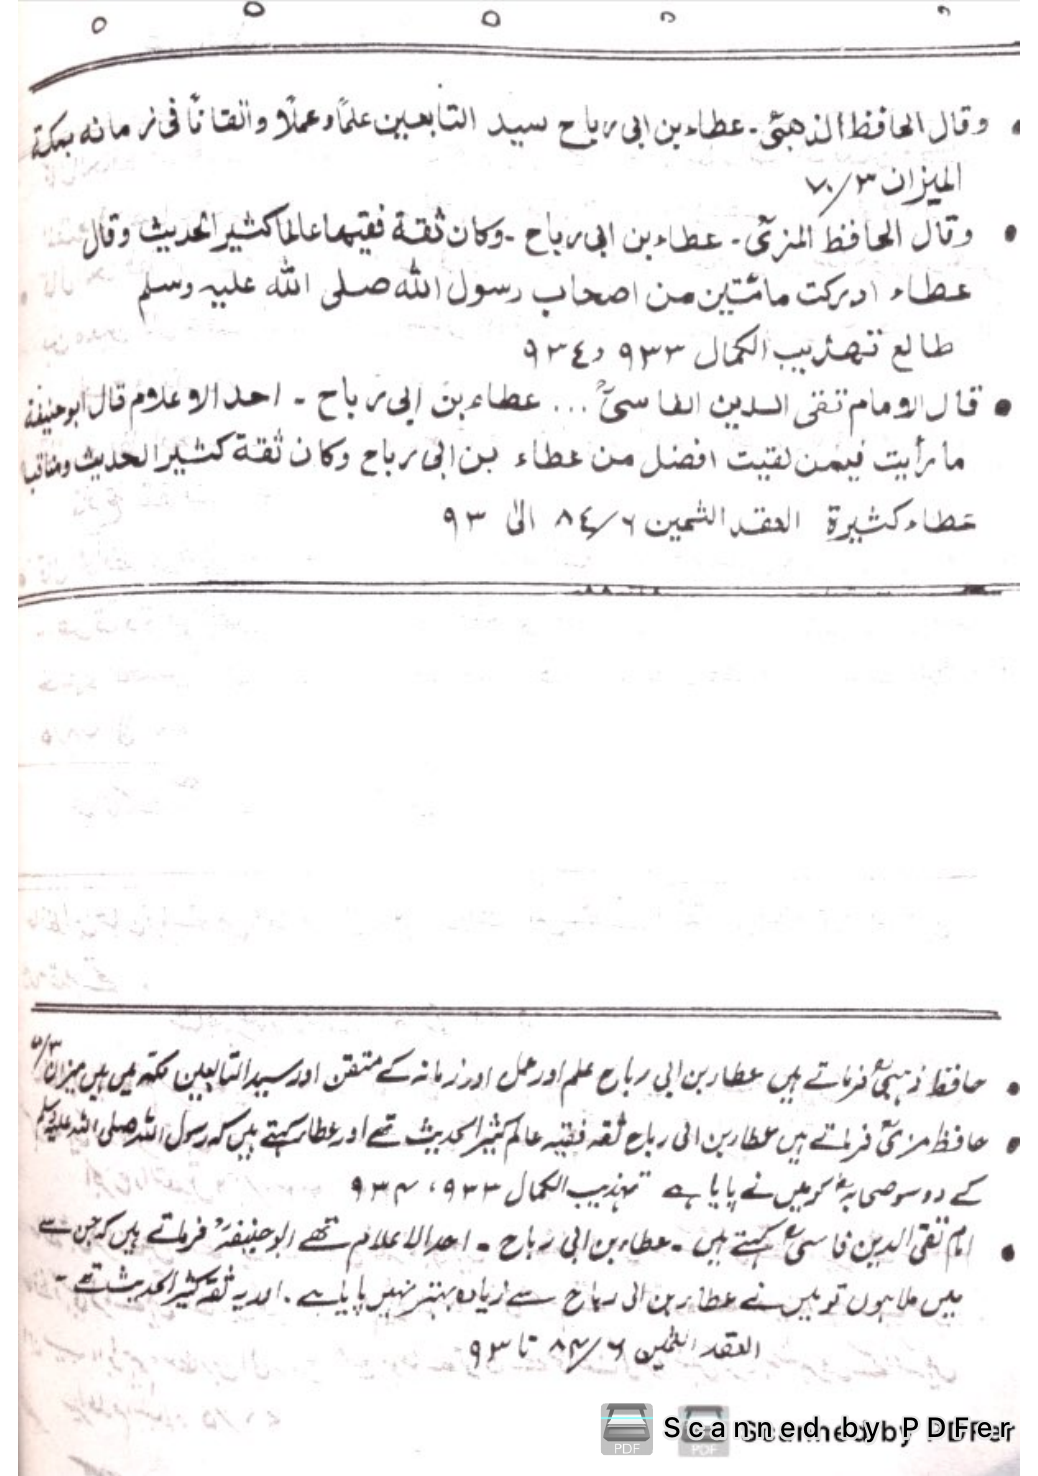 وقال الحافظ الذهبیؒ۔ عطاء بن ابی رباح سید التابعین علماً وعملاً واتقاناً فی زمانہ بمکة
المیزان ٣/٧٠
وقال الحافظ المزیؒ۔ عطاء بن ابی رباح ۔وکان ثقة فقیہا عالما کثیر الحدیث وقال
عطاء ادرکت مائتین من اصحاب رسول اللہ صلی اللہ علیہ وسلم
طالع تہذیب الکمال ٩٣٣ و ٩٣٤
قال الامام تقی الدین الفاسیؒ ... عطاء بن ابی رباح ۔ احد الاعلام قال ابوحنیفة
ما رأیت فیمن لقیت افضل من عطاء بن ابی رباح وکان ثقة کثیر الحدیث ومناقب
عطاء کثیرة العقد الثمین ٦/٨٤ الی ٩٣
حافظ ذہبیؒ فرماتے ہیں عطاء بن ابی رباح علم اور عمل اور زمانہ کے متقن اور سید التابعین مکہ میں ہیں میزان
حافظ مزیؒ فرماتے ہیں عطاء بن ابی رباح ثقہ فقیہ عالم کثیر الحدیث تھے اور عطاء کہتے ہیں کہ رسول اللہ صلی اللہ علیہ وسلم
کے دو سو صحابہؓ کو میں نے پایا ہے تہذیب الکمال ۹۳۳، ۹۳۴
امام تقی الدین فاسیؒ کہتے ہیں ۔ عطاء بن ابی رباح ۔ احد الاعلام تھے ابوحنیفہؒ فرماتے ہیں کہ جن سے
میں ملا ہوں تو میں نے عطاء بن ابی رباح سے زیادہ بہتر نہیں پایا ہے ۔ اور یہ ثقہ کثیر الحدیث تھے ۔
العقد الثمین ۶/۸۴ تا ۹۳
Scanned by PDFer
Scanned by PDFer